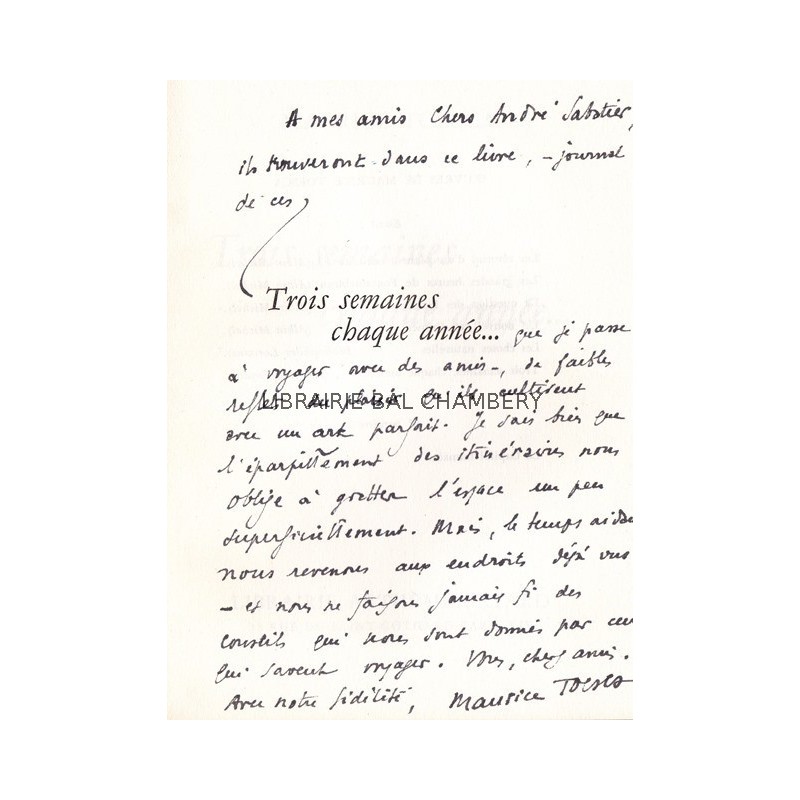 A mes amis Chers André Sabatier,
ils trouveront dans ce livre, - journal
de ces
Trois semaines
chaque année...
que je passe
à voyager avec des amis -, de faibles
reflets du plaisir qu'ils cultivent
LIBRAIRIE BAL CHAMBERY
avec un art parfait. Je sais bien que
l'éparpillement des itinéraires nous
oblige à gratter l'espace un peu
superficiellement. Mais, le temps aidant
nous revenons aux endroits déjà vus
- et nous ne faisons jamais fi des
conseils qui nous sont donnés par ceux
qui savent voyager. chers amis.
Avec notre fidélité, Maurice Toesca